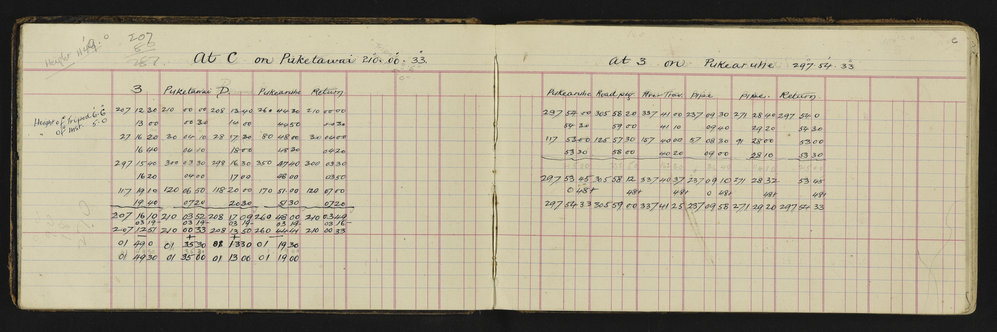 207
Height
At C on Puketawai 210° 00' 33"
3 Puketawai D. Pukearuhe Return
207 12 30 210 00 00 208 13 40 260 44 30 210 00 00
13 00 00 30 14 00 44 50 00 30
Height of Tripod 6.6
of Inst 5.0
27 16 20 30 04 10 28 17 30 80 48 00 30 04 00
16 40 04 10 18 00 48 20 04 20
297 15 40 300 03 30 298 16 30 350 47 40 300 03 30
16 20 04 00 17 00 48 00 03 50
117 19 10 120 06 50 118 20 00 170 51 00 120 07 00
19 40 07 20 20 30 51 30 07 20
207 16 10 210 03 52 208 17 09 260 48 00 210 03 49
03 19 03 19 03 19 03 19 03 16
207 12 51 210 00 33 208 13 50 260 44 41 210 00 33
01 49 0 01 35 30 01 13 30 01 19 30
01 49 30 01 35 00 01 13 00 01 19 00
At 3 on Pukearuhe 297° 54' 33"
Pukearuhe Road peg Return
297 54 00 305 58 20 337 41 00 237 09 30 271 28 40 297 54 0
54 30 59 00 41 10 09 40 29 20 54 30
117 53 00 125 57 30 157 40 00 57 08 30 91 28 00 53 00
53 30 58 00 40 20 09 00 28 10 53 30
297 53 45 305 58 12 337 40 37 237 09 10 271 28 32 53 45
0 48+ 48+ 48+ 0 48+ 48+ 48+
297 54 33 305 59 00 337 41 25 237 09 58 271 29 20 297 54 33